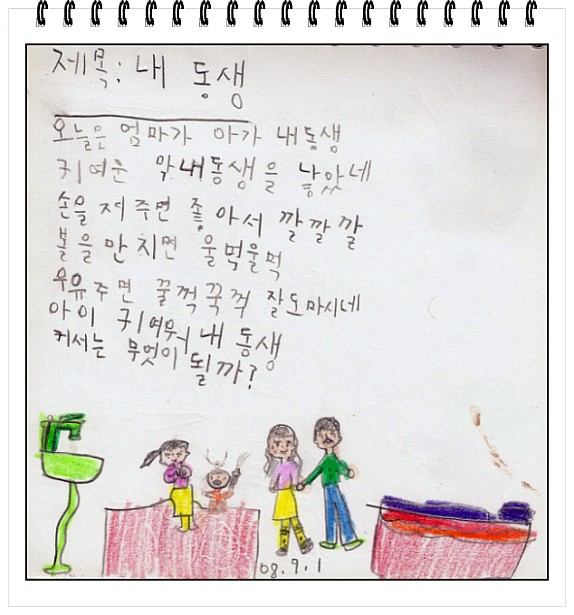 제목: 내 동생
오늘은 엄마가 아가 내동생
귀여운 막내동생을 낳았네
손을 저주면 좋아서 깔깔깔
볼을 만지면 울먹울먹
우유주면 꿀꺽꾹꺽 잘도마시네
아이 귀여워 내 동생
커서는 무엇이 될까?
08.9.1